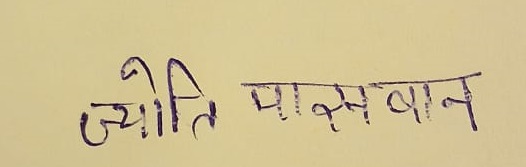 ज्योति पासवान